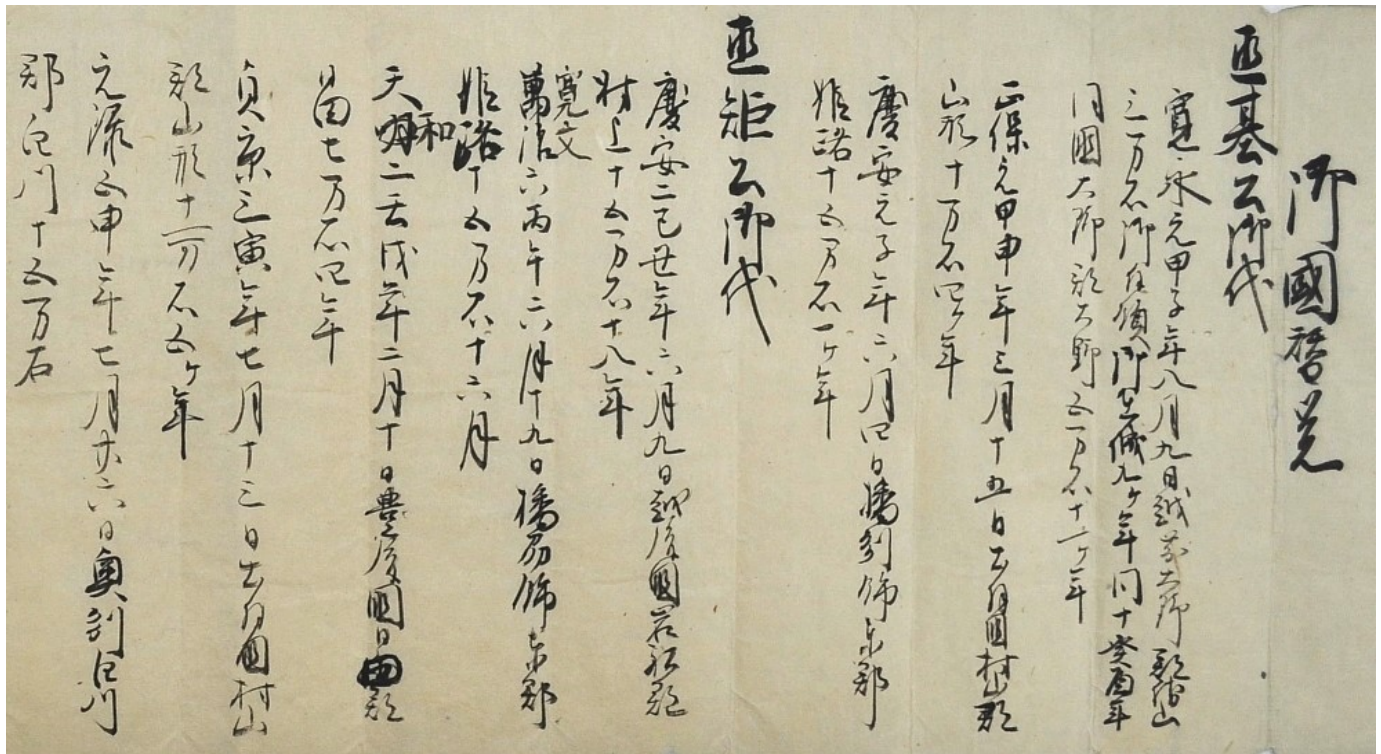 御國替覚
直基公御代
寛永元甲子年八月九日越前大野郡勝山
三万石御拝領御在城九ヶ年同十癸酉年
同國大野郡大野五万石十二ヶ年
正保元甲申年三月十五日出羽國村山郡
山形十五万石四ヶ年
慶安元子年六月四日播刕飾東郡
姫路十五万石一ヶ年
直矩公御代
慶安二己丑年六月九日越後國岩船郡
村上十五万石十八年
寛文
萬治六丙午年六月十九日播刕飾東郡
姫路十五万石十六月
和
天明二壬戌年二月十日豊後國日田郡
日田七万石四年
貞享三寅年七月十三日出羽國村山
郡山形十一万石五ヶ年
元禄五申年七月廿六日奥刕白川
郡白川十五万石